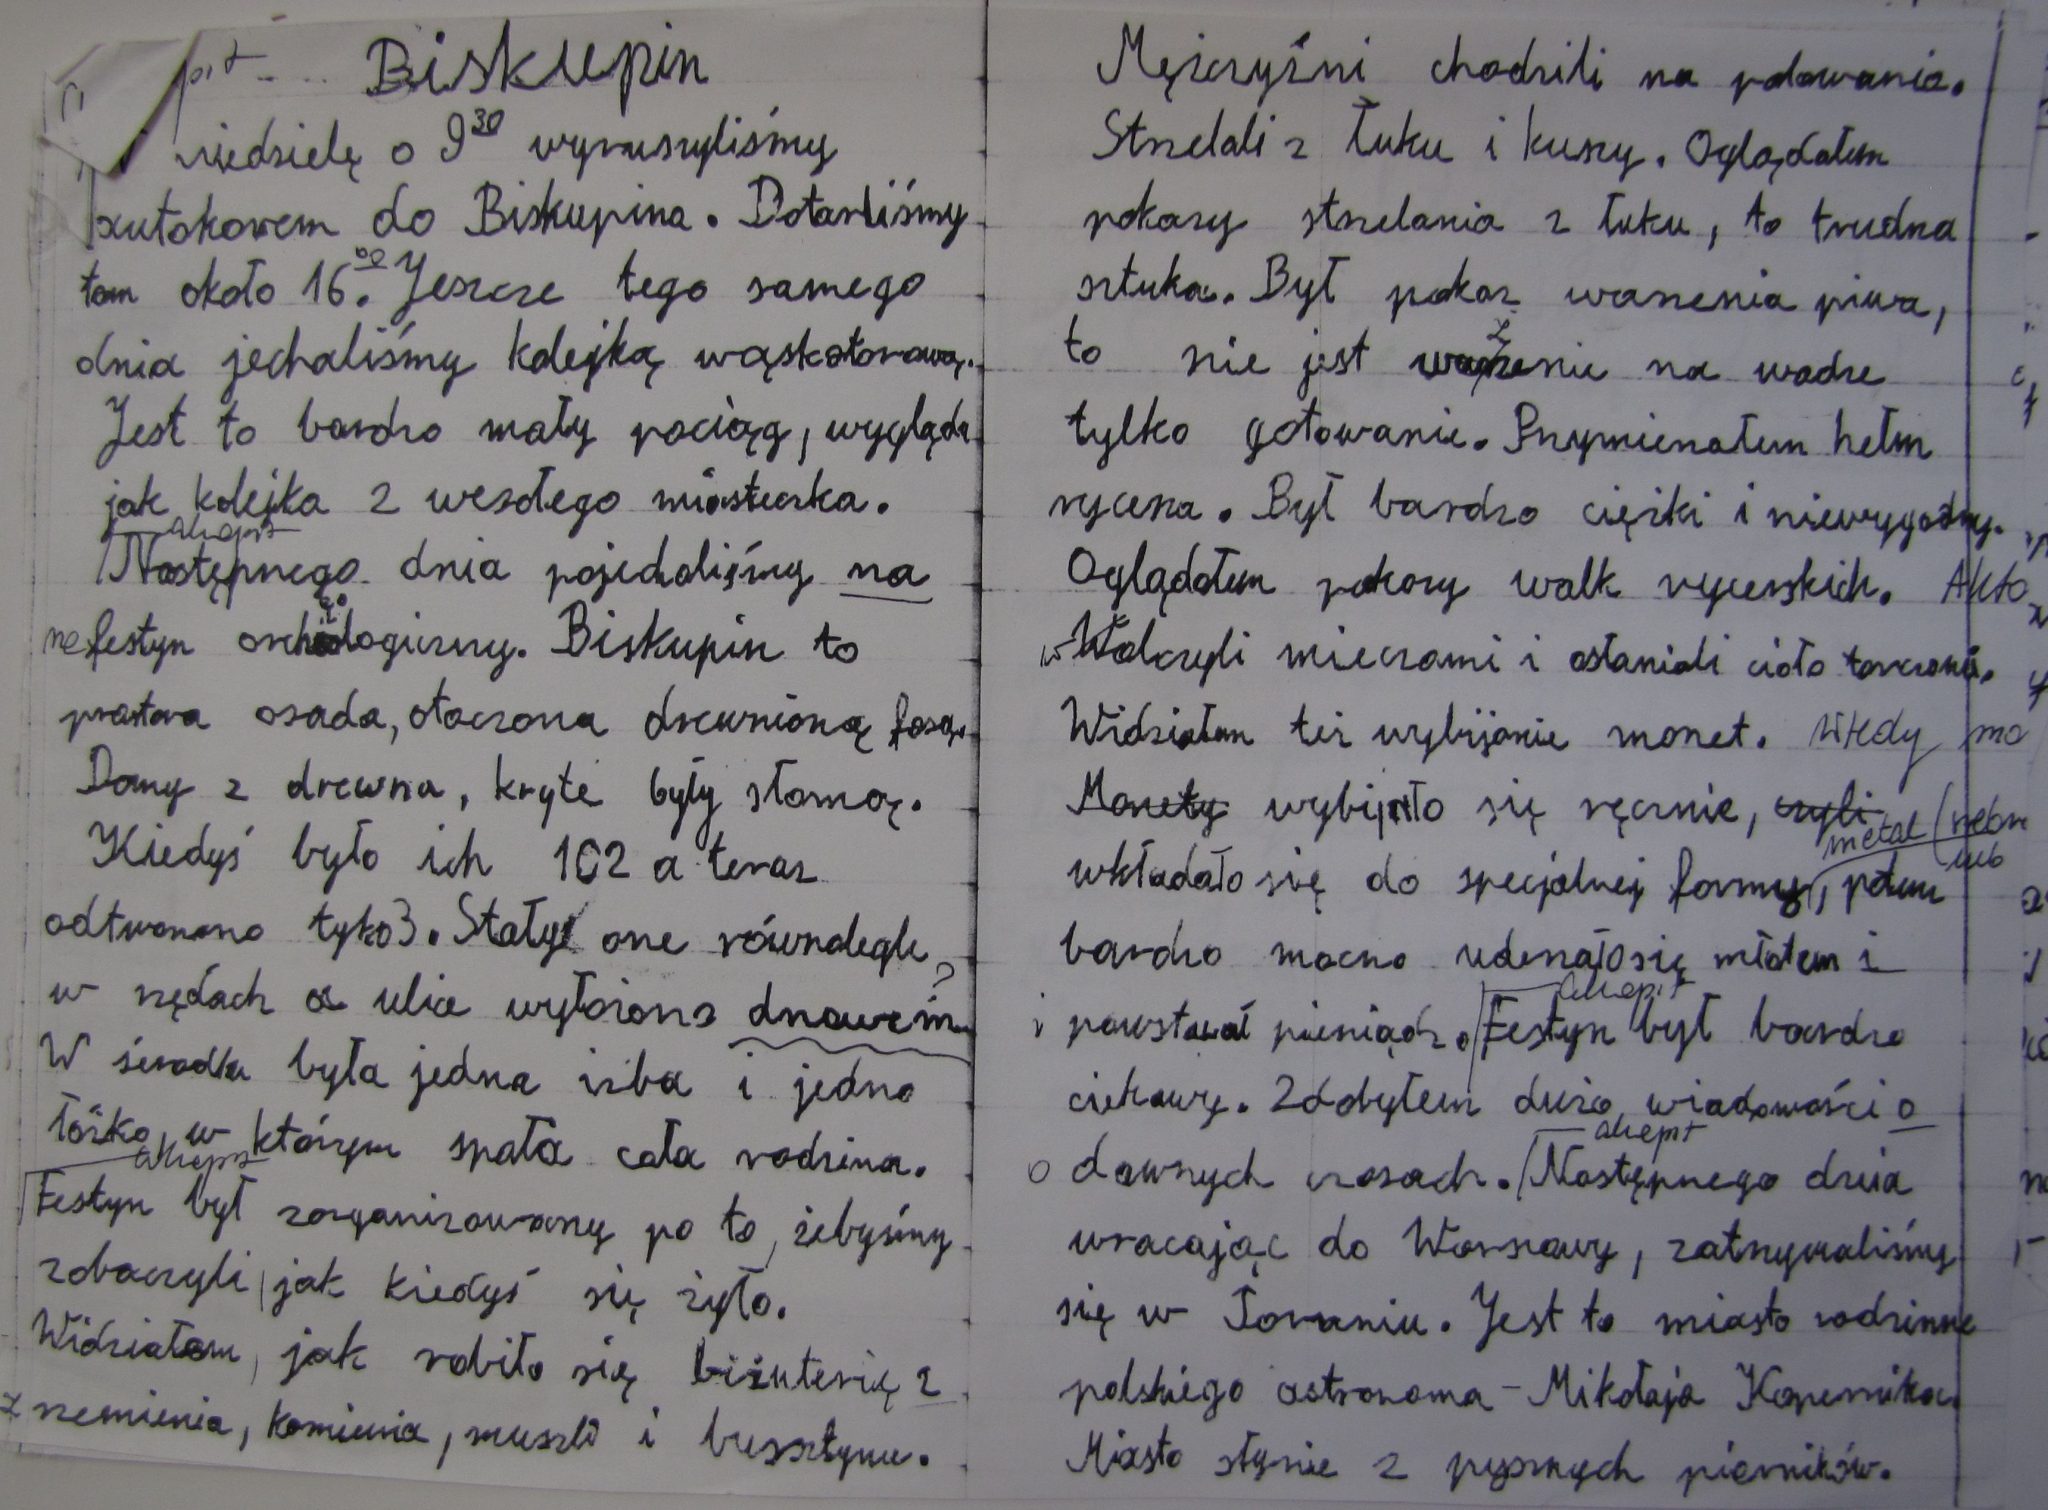 Biskupin
niedzielę o 9³⁰ wyruszyliśmy
autokarem do Biskupina. Dotarliśmy
tam około 16⁰⁰. Jeszcze tego samego
dnia jechaliśmy kolejką wąskotorową.
Jest to bardzo mały pociąg, wygląda
jak kolejka z wesołego miasteczka.
akapit
Następnego dnia pojechaliśmy na
na festyn archeologiczny. Biskupin to
prastara osada, otoczona drewnianą fosą.
Domy z drewna, kryte były słomą.
Kiedyś było ich 102 a teraz
odtworzono tyko 3. Stały one równolegle
w rzędach a ulice wyłożono drzewem
W środku była jedna izba i jedno
łóżko, w którym spała cała rodzina.
akapit
Festyn był zorganizowany po to, żebyśmy
zobaczyli, jak kiedyś się żyło.
Widziałem, jak robiło się biżuterię z
z rzemienia, kamienia, muszli i bursztynu.
Mężczyźni chodzili na polowania.
Strzelali z łuku i kuszy. Oglądałem
pokazy strzelania z łuku, to trudna
sztuka. Był pokaz warzenia piwa,
to nie jest ważenie na wadze
tylko gotowanie. Przymierzałem hełm
rycerza. Był bardzo ciężki i niewygodny.
Oglądałem pokazy walk rycerskich. Akto
Walczyli mieczami i osłaniali ciało tarczami.
Widziałem też wybijanie monet. Wtedy mo
Monety wybijało się ręcznie, czyli
metal
lub
wkładało się do specjalnej formy, potem
bardzo mocno uderzało się młotem i
akapit
i powstawał pieniądz. Festyn był bardzo
ciekawy. Zdobyłem dużo wiadomości o
akapit
o dawnych czasach. Następnego dnia
wracając do Warszawy, zatrzymaliśmy
się w Toruniu. Jest to miasto rodzinne
polskiego astronoma - Mikołaja Kopernika.
Miasto słynie z pysznych pierników.